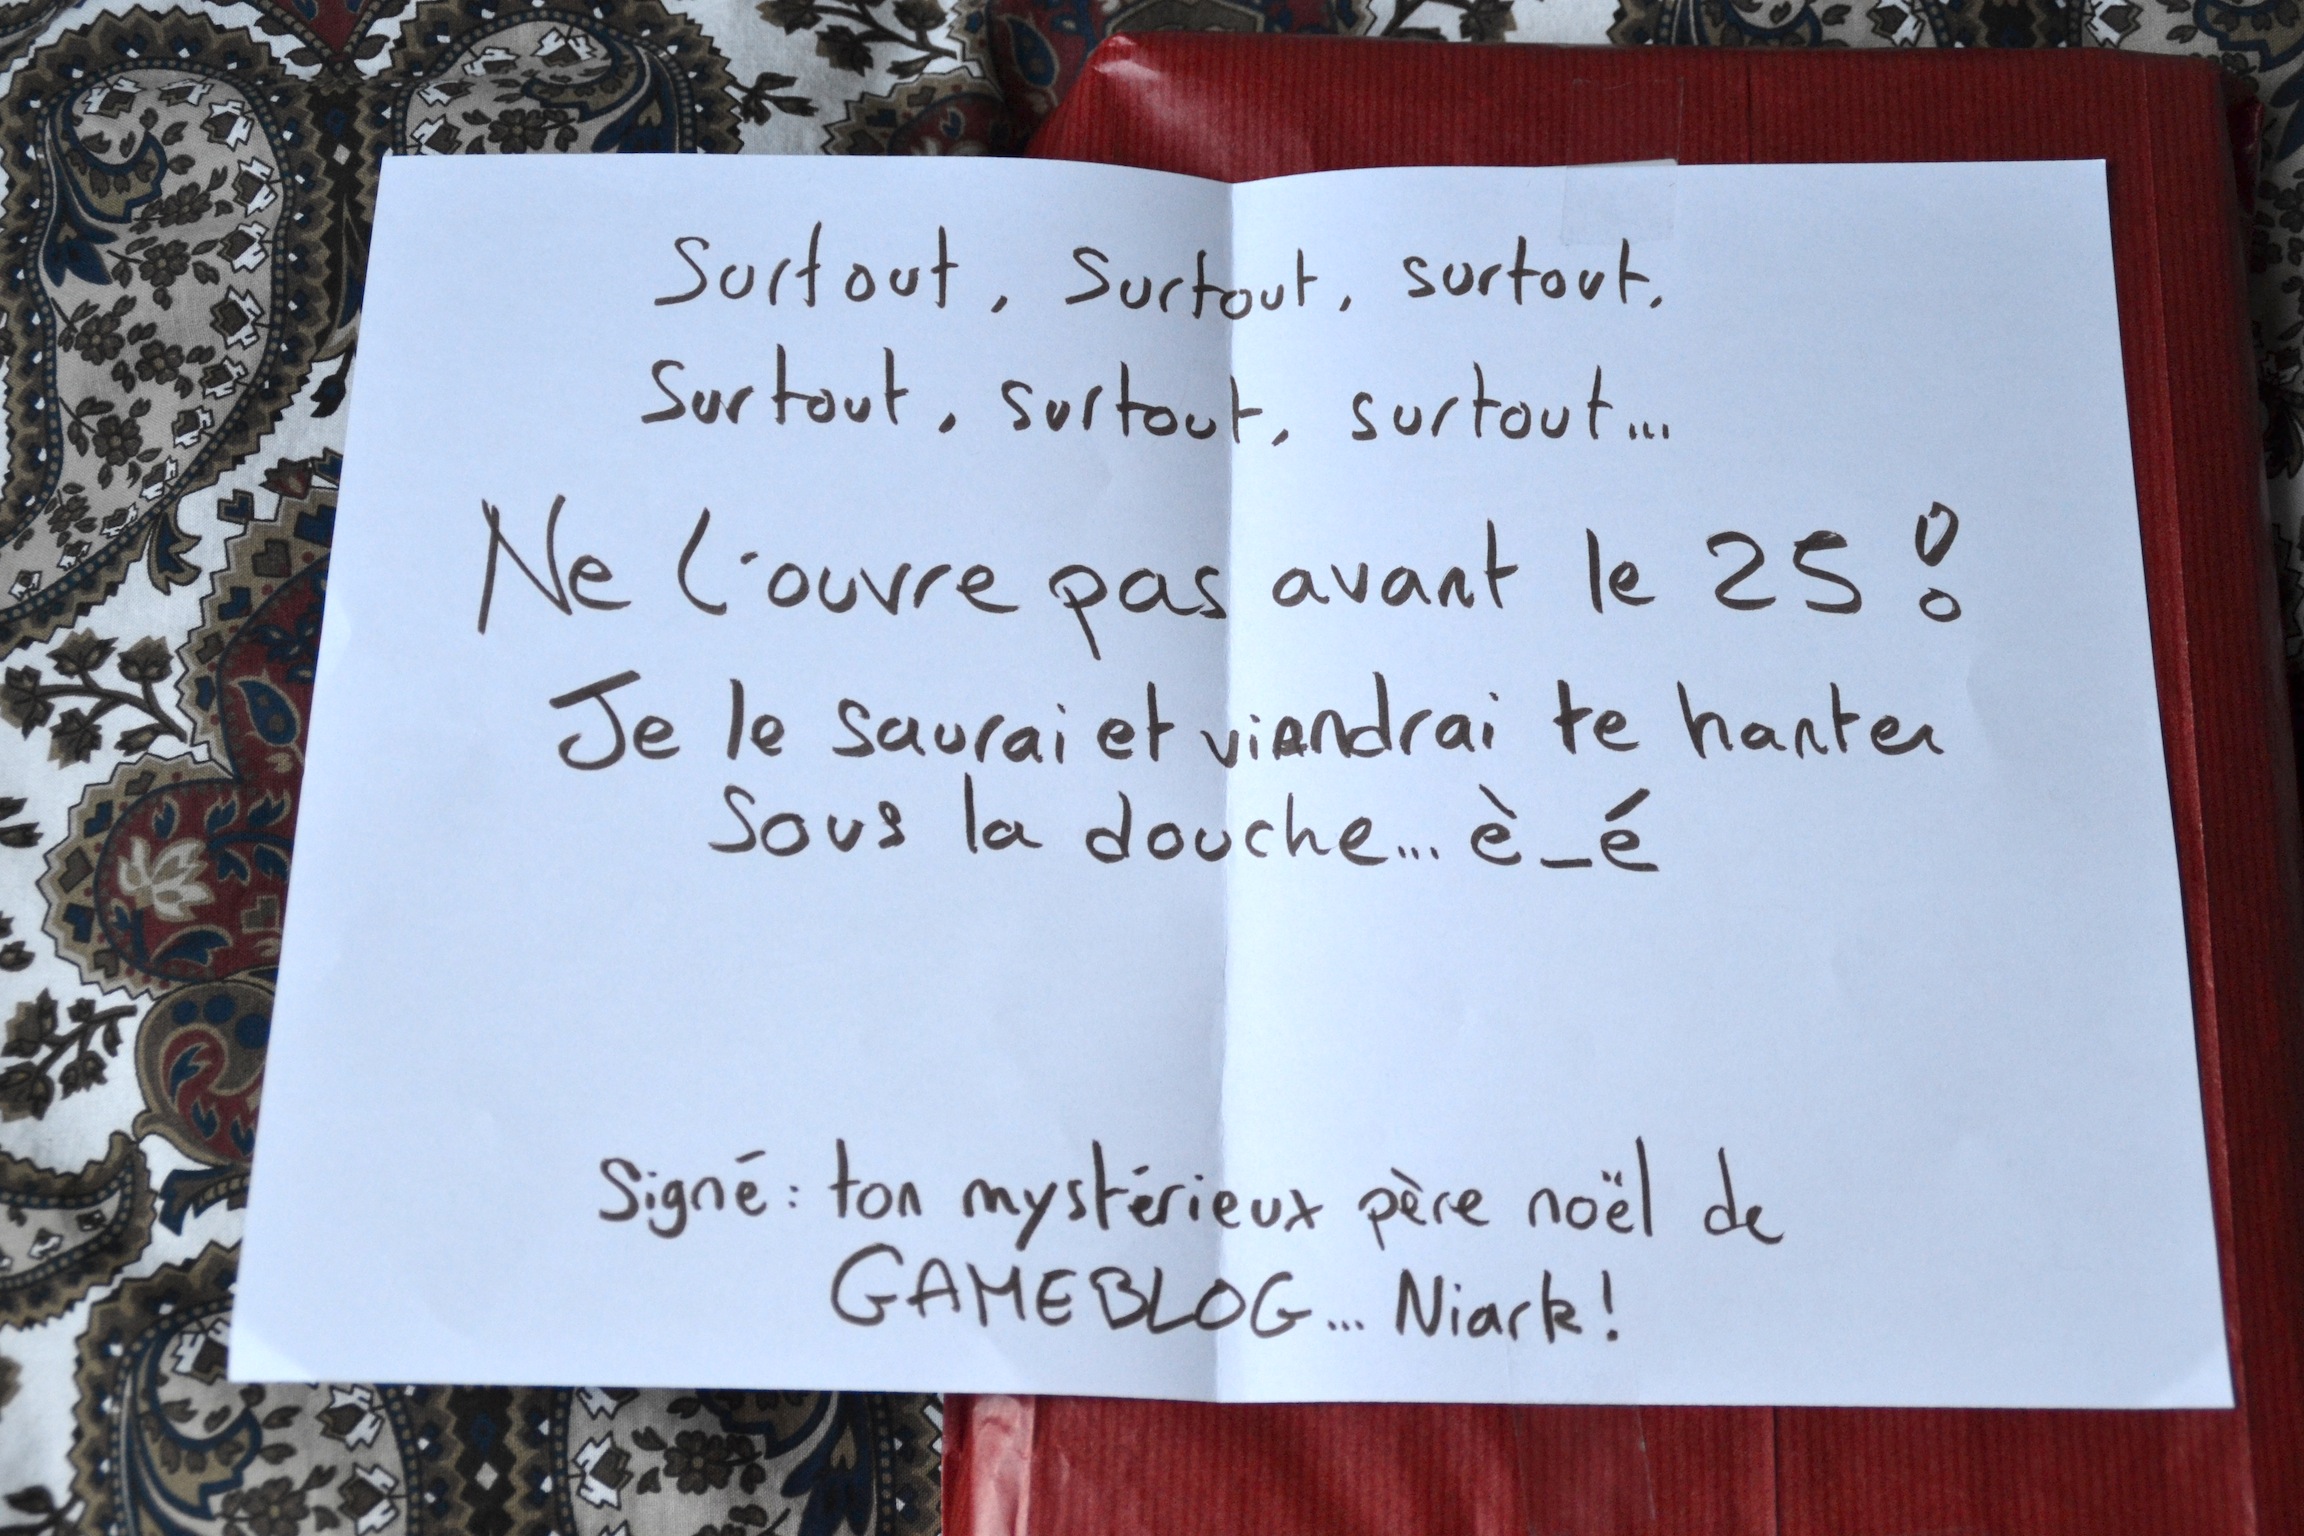 Surtout, Surtout, surtout,
Surtout, surtout, surtout...
Ne l'ouvre pas avant le 25 !
Je le saurai et viandrai te hanter
Sous la douche... è_é
Signé : ton mystérieux père noël de
GAMEBLOG... Niark !